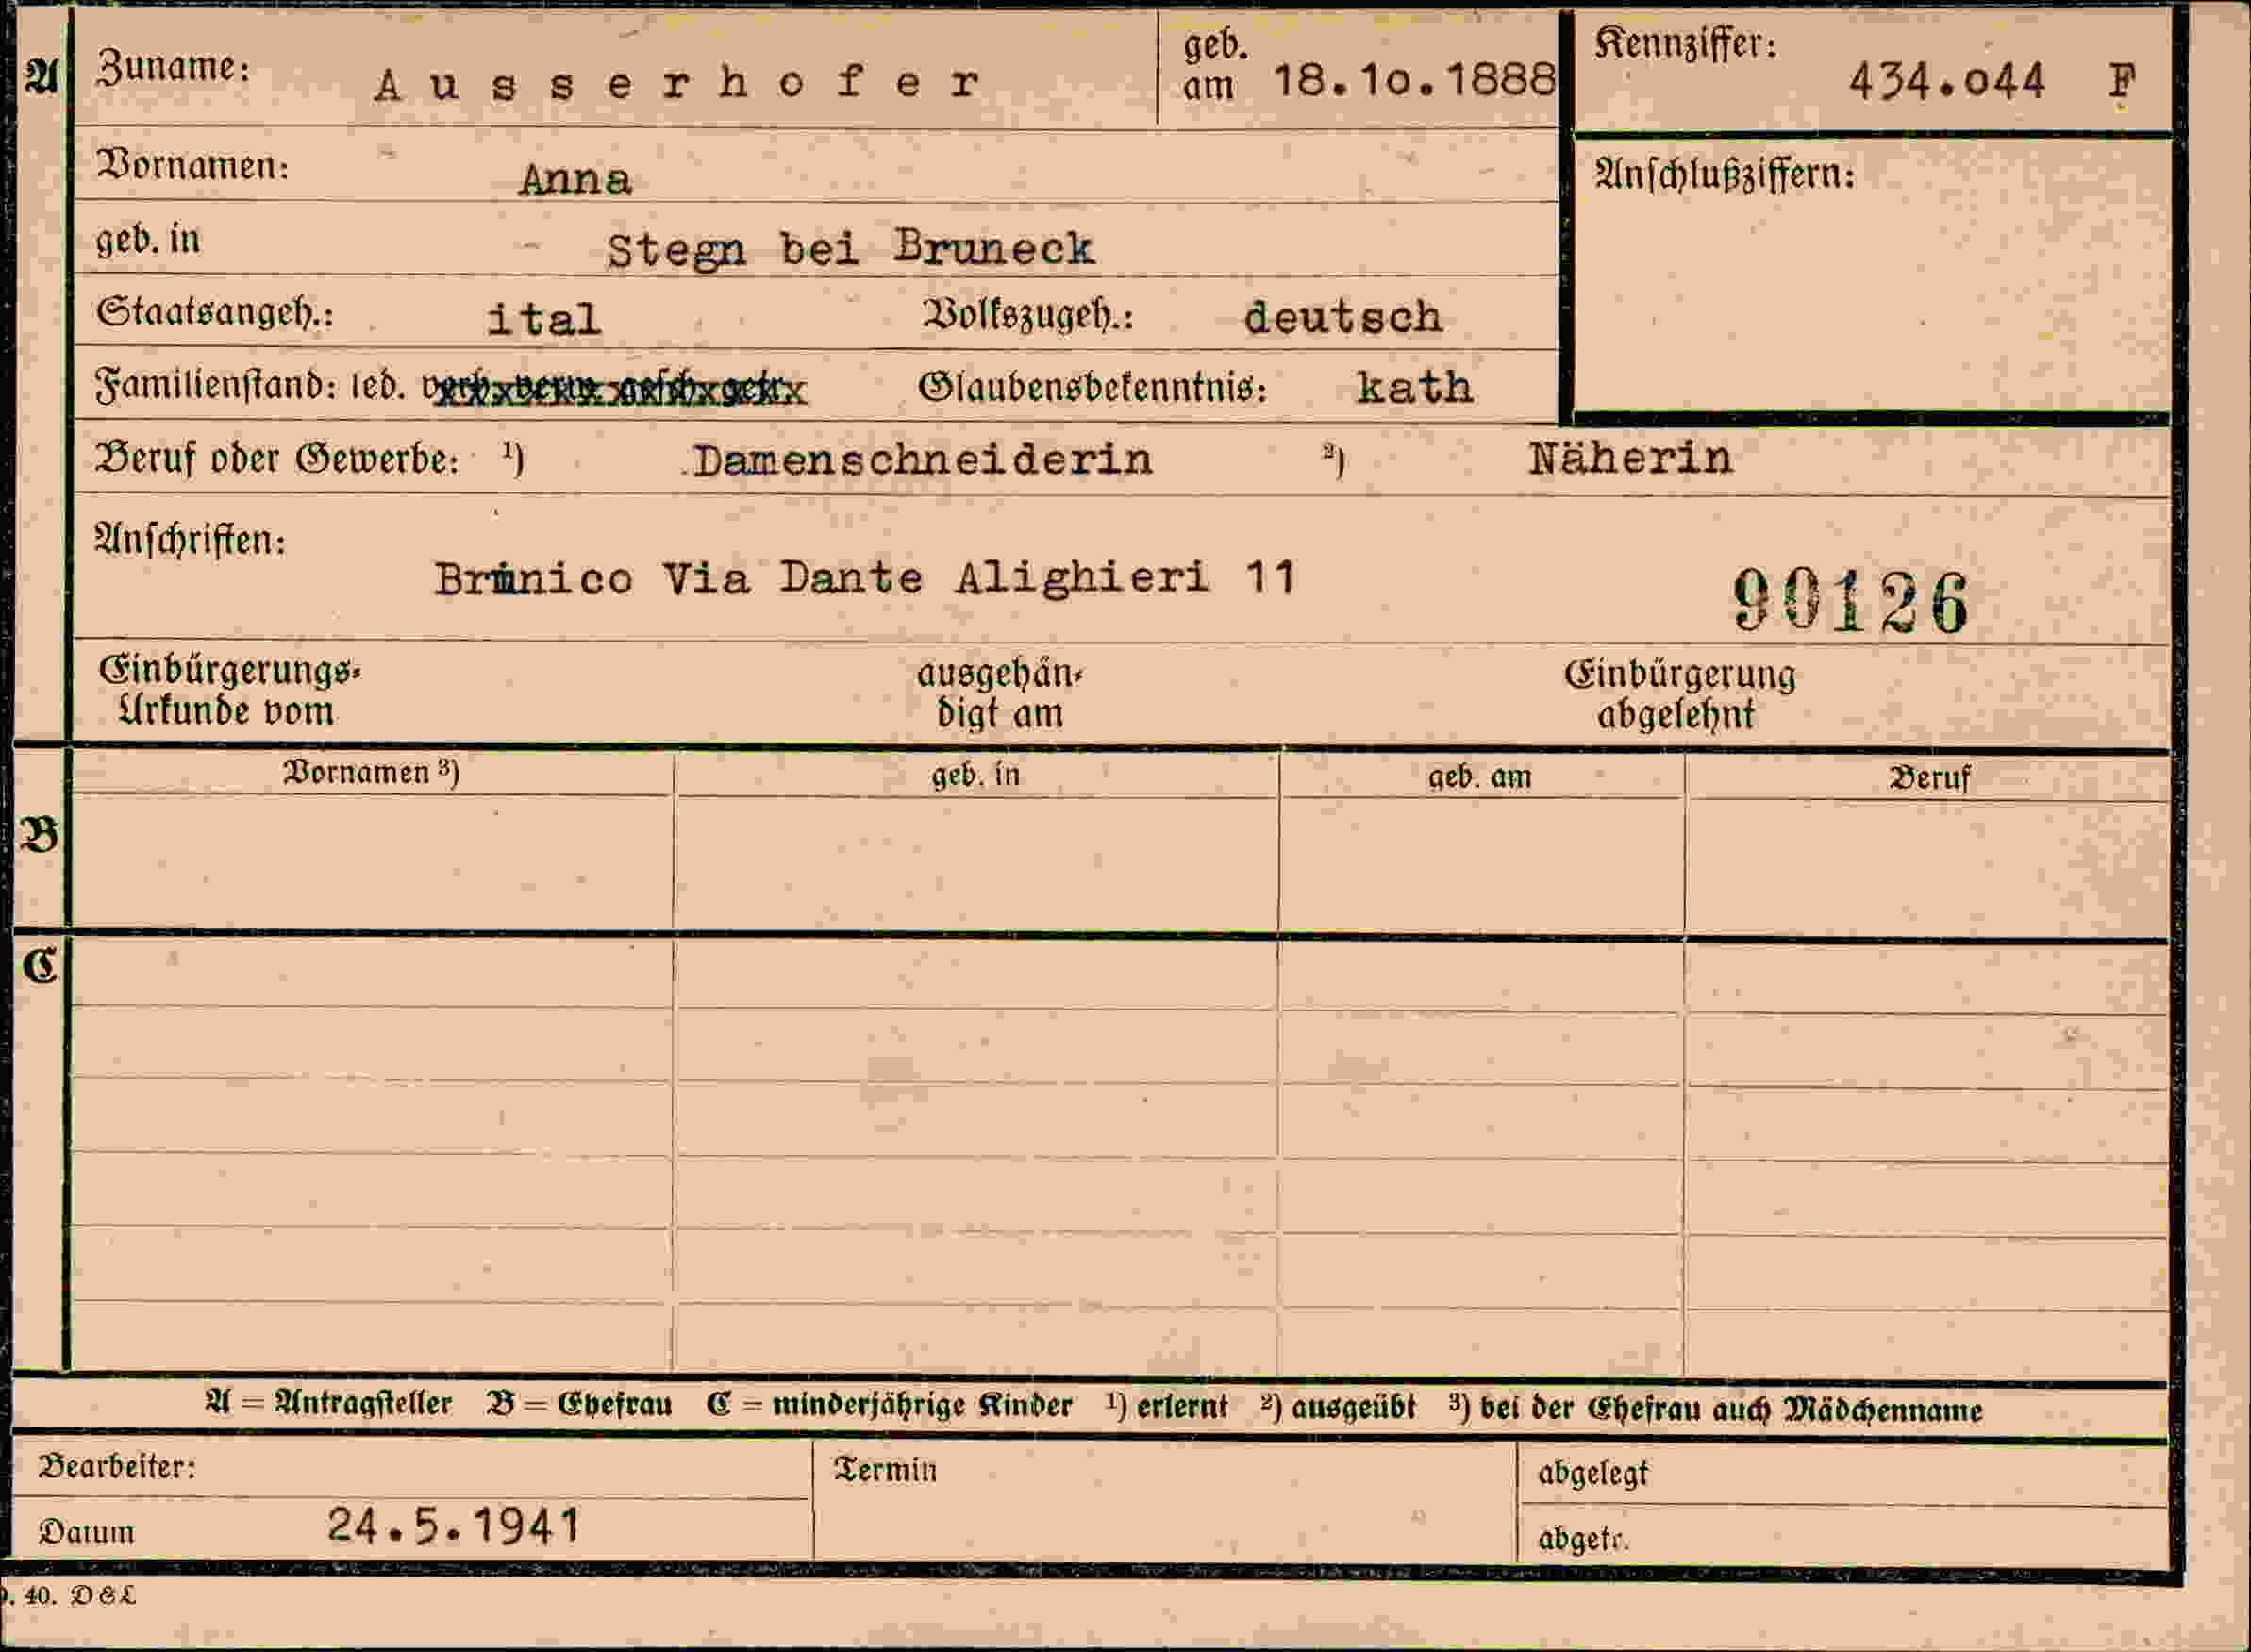 A Zuname: Ausserhofer geb. am 18.10.1888 Kennziffer: 434.044 F
Vornamen: Anna Anschlußziffern:
geb. in Stegn bei Bruneck
Staatsangeh.: ital Volkszugeh.: deutsch
Familienstand: led. verh. verw. gesch. getr. Glaubensbekenntnis: kath
Beruf oder Gewerbe: 1) Damenschneiderin 2) Näherin
Anschriften:
Brunico Via Dante Alighieri 11 90126
Einbürgerungs- ausgehän- Einbürgerung
Urkunde vom digt am abgelehnt
Vornamen 3) geb. in geb. am Beruf
B
C
A = Antragsteller B = Ehefrau C = minderjährige Kinder 1) erlernt 2) ausgeübt 3) bei der Ehefrau auch Mädchenname
Bearbeiter: Termin abgelegt
Datum 24.5.1941 abgetr.
. 40. D&L